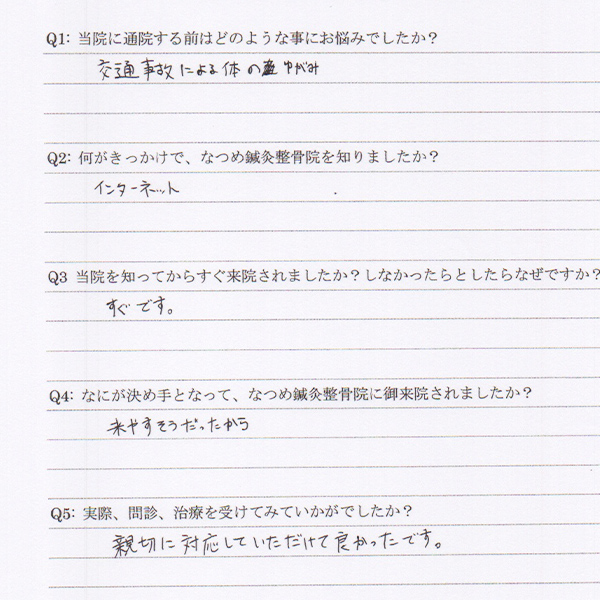 Q1: 当院に通院する前はどのような事にお悩みでしたか？
交通事故による体のゆがみ
Q2: 何がきっかけで、なつめ鍼灸整骨院を知りましたか？
インターネット
Q3 当院を知ってからすぐ来院されましたか？しなかったらとしたらなぜですか？
すぐです。
Q4: なにが決め手となって、なつめ鍼灸整骨院に御来院されましたか？
来やすそうだったから
Q5: 実際、問診、治療を受けてみていかがでしたか？
親切に対応していただけて良かったです。